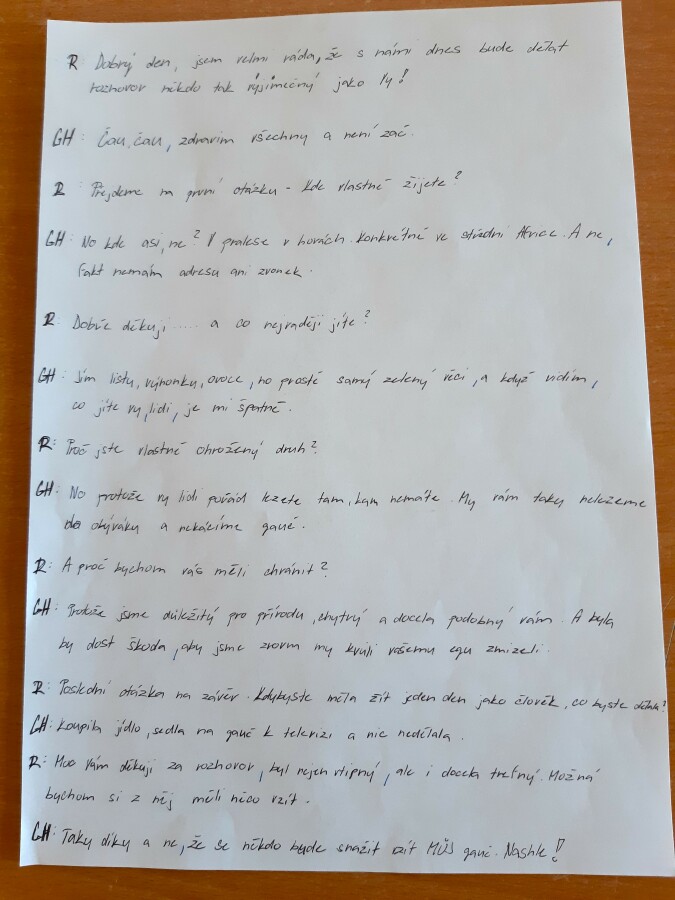 R Dobrý den, jsem velmi ráda, že s námi dnes bude dělat
rozhovor někdo tak výjimečný jako Vy!
GH: Čau, čau, zdravim všechny a není zač.
R Přejdeme na první otázku - Kde vlastně žijete?
GH: No kde asi, ne? V pralese v horách. Konkrétně ve střední Africe. A ne,
fakt nemám adresu ani zvonek.
R: Dobře děkuji .... a co nejraději jíte?
GH: Jím listy, výhonky, ovoce, no prostě samý zelený věci, a když vidím,
co jíte vy, lidi, je mi špatně.
R: Proč jste vlastně ohrožený druh?
GH: No protože vy lidi pořád lezete tam, kam nemáte. My vám taky nelezeme
do obýváku a nekácíme gauč.
R: A proč bychom vás měli chránit?
GH: Protože jsme důležitý pro přírodu, chytrý a docela podobný vám. A byla
by dost škoda, aby jsme zrovna my kvůli vašemu egu zmizeli.
R: Poslední otázka na závěr. Kdybyste měla žít jeden den jako člověk, co byste dělala?
GH: Koupila jídlo, sedla na gauč k televizi a nic nedělala.
R: Moc Vám děkuji za rozhovor, byl nejen vtipný, ale i docela trefný. Možná
bychom si z něj měli něco vzít.
GH: Taky díky a ne, že se někdo bude snažit vzít MŮJ gauč. Nashle!